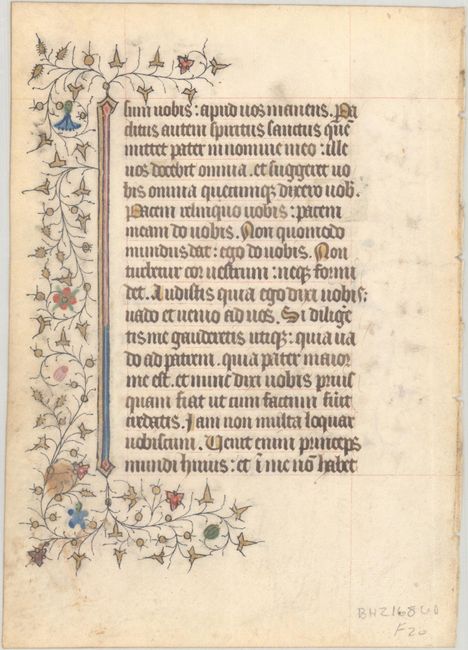 sum uobis : apud uos manens. Pa
clitus autem spiritus sanctus quē
mittet pater in nomine meo : ille
uos docebit omnia. et suggeret uo
bis omnia quecumq; dixero uob̄.
Pacem relinquo uobis : pacem
meam do uobis. Non quomodo
mundus dat : ego do uobis. Non
turbetur cor uestrum : neq; formi
det. Audistis quia ego dixi uobis :
uado et uenio ad uos. Si dilige
tis me gauderetis utiq; : quia ua
do ad patrem. quia pater maior
me est. et nunc dixi uobis prius
quam fiat ut cum factum fu̅it
credatis. Iam non multa loquar
uobiscum. Uenit enim princeps
mundi huius : et ī me nō habet
F20